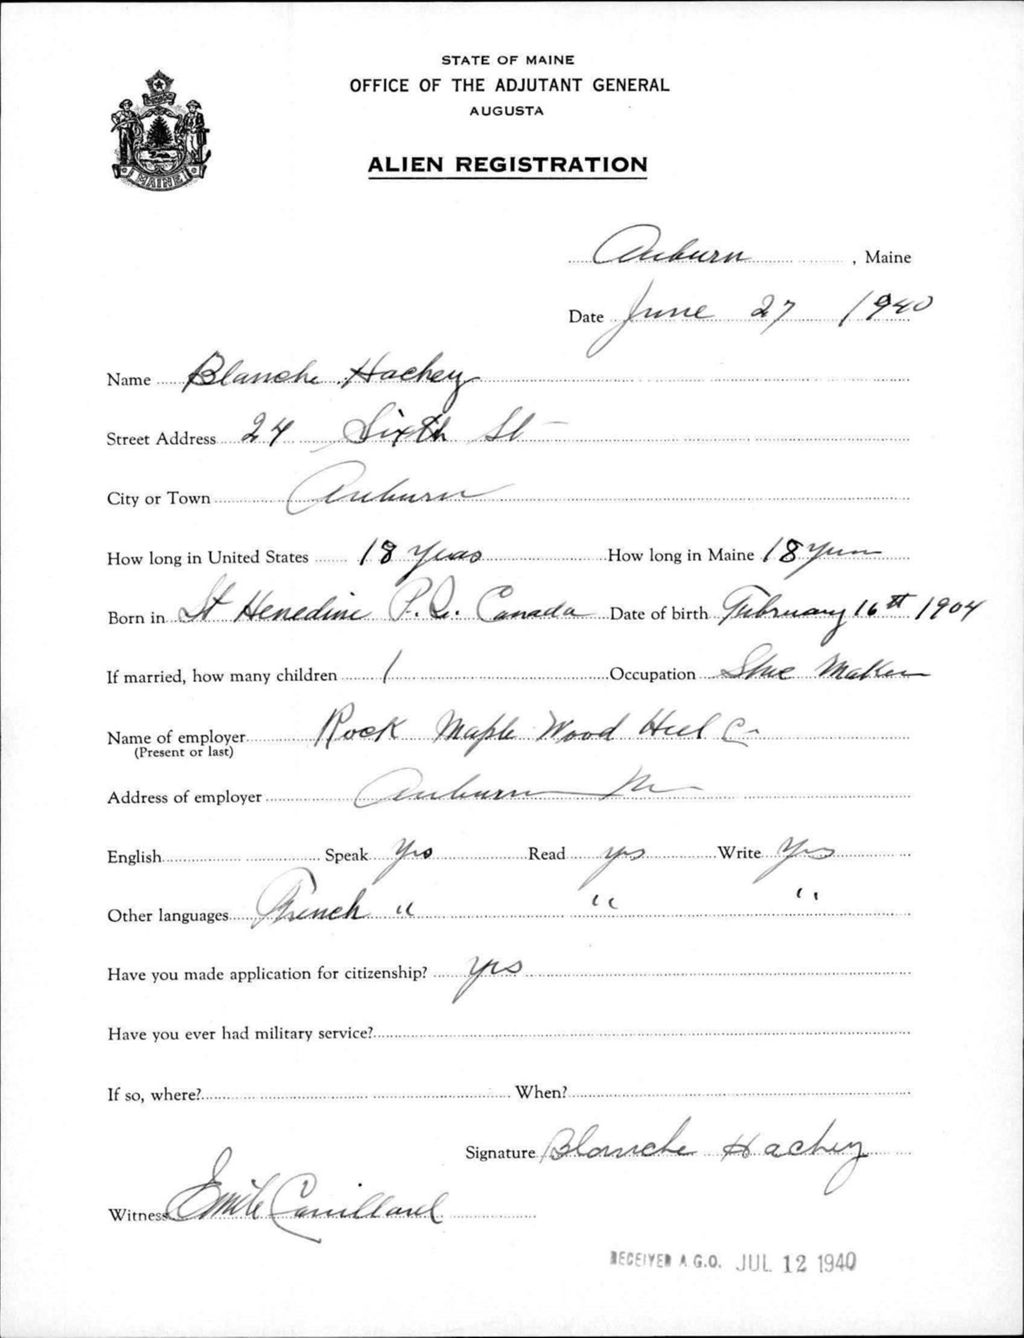 STATE OF MAINE
OFFICE OF THE ADJUTANT GENERAL
AUGUSTA
MAINE
ALIEN REGISTRATION
Auburn, Maine
Date June 27 1940
Name Blanche Hachey
Street Address 24 Sixth St
City or Town Auburn
How long in United States 18 Years How long in Maine 18 Years
Born in St Henedine P.Q. Canada Date of birth February 16th 1904
If married, how many children 1 Occupation Shoe Maker
Name of employer Rock Maple Wood Heel Co
(Present or last)
Address of employer Auburn Me
English Speak Yes Read yes Write Yes
Other languages French " " "
Have you made application for citizenship? yes
Have you ever had military service?
If so, where? When?
Signature Blanche Hachey
Witness Emile
RECEIVED A.G.O. JUL 12 1940